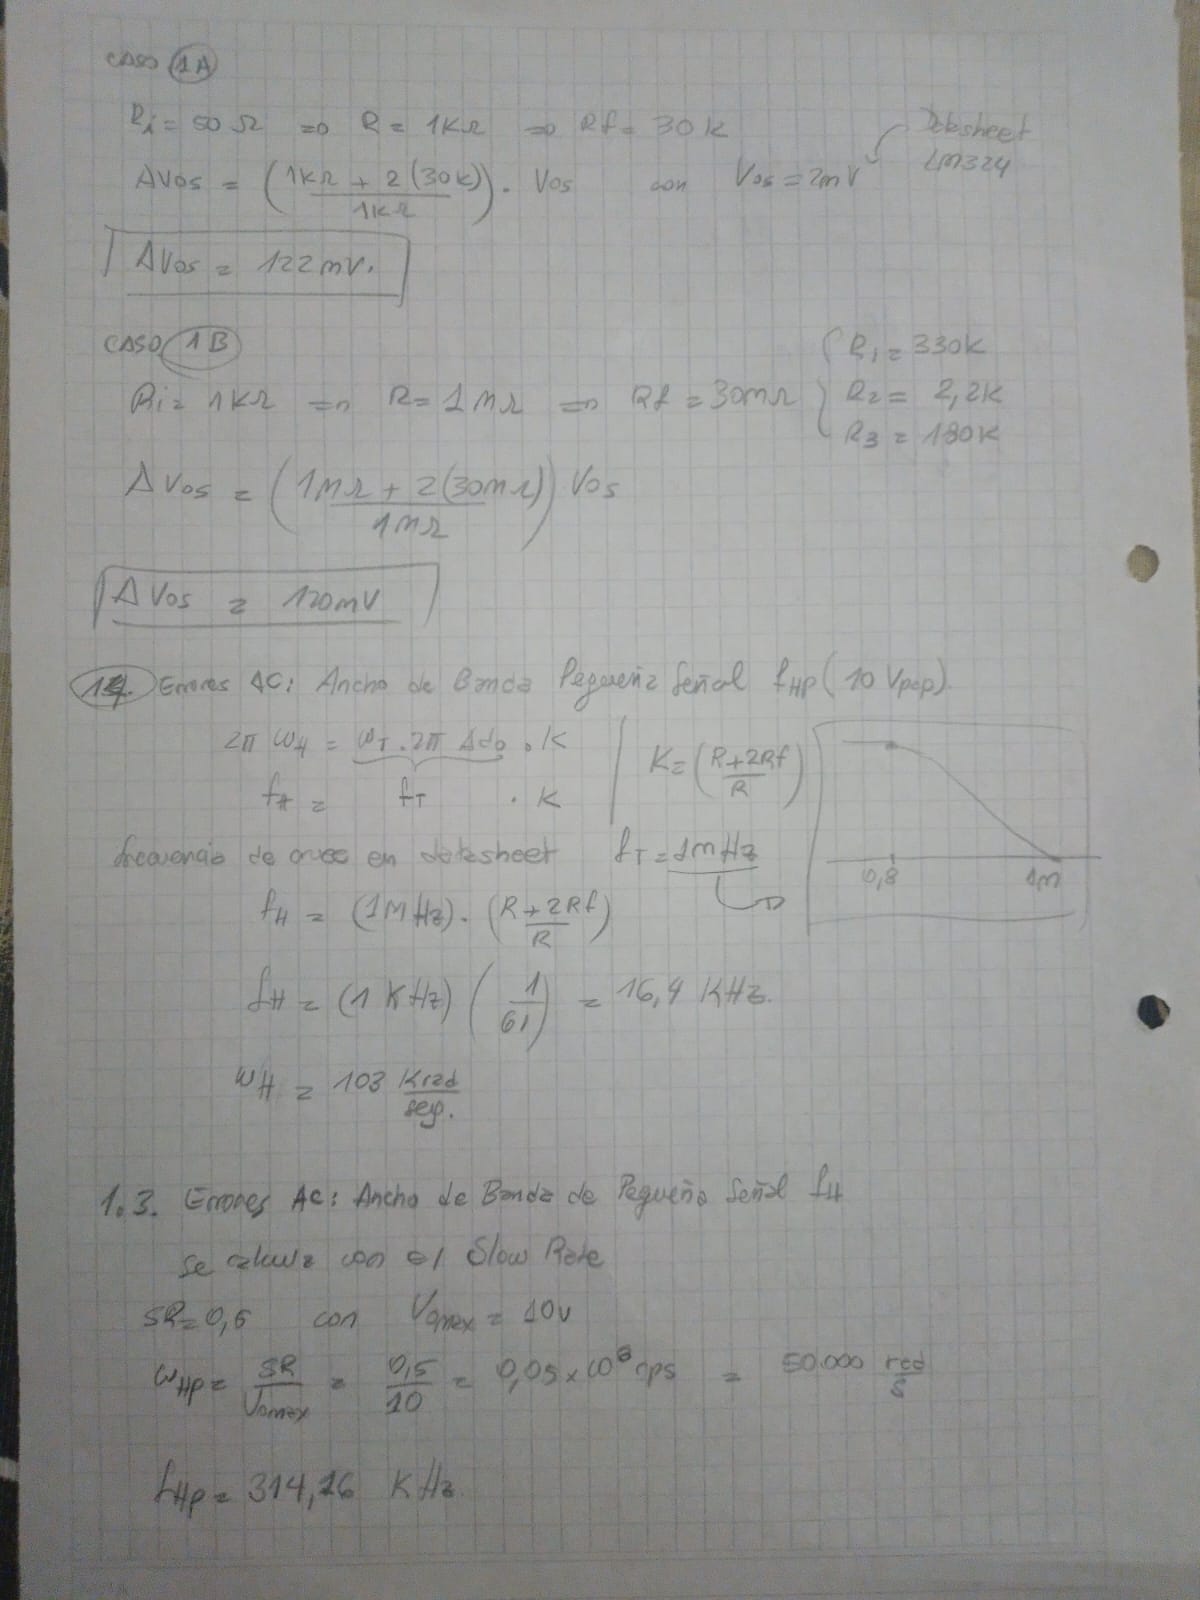 CASO 1A
Ri = 50 Ω ⇒ R = 1KΩ ⇒ Rf = 30K
Datasheet LM324
ΔVos = (1KΩ + 2(30K) / 1KΩ) . Vos con Vos = 2mV
ΔVos = 122mV.
CASO 1B
Ri = 1KΩ ⇒ R = 1MΩ ⇒ Rf = 30MΩ
R1 = 330K
R2 = 2,2K
R3 = 180K
ΔVos = (1MΩ + 2(30MΩ) / 1MΩ) Vos
ΔVos = 120mV
14. Errores AC: Ancho de Banda Pequeña Señal fHp (10 Vpap).
2π ωH = ωT . 2π Ado . K
K = (R + 2Rf / R)
fH = fT . K
frecuencia de cruce en datasheet fT = 1MHz
0,8 1M
fH = (1MHz) . (R + 2Rf / R)
fH = (1 KHz) (1 / 61) = 16,4 KHz.
ωH = 103 Krad / seg.
1.3. Errores AC: Ancho de Banda de Pequeña Señal fH
se calcula con el Slow Rate
SR = 0,5 con Vomax = 10V
ωHp = SR / Vomax = 0,5 / 10 = 0,05 x 10⁶ rps = 50.000 rad / s
fHp = 314,16 KHz.